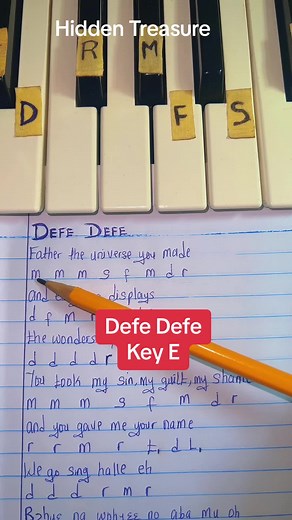 Hidden Treasure
R M
D F S
DEFE DEFE
Father the universe you made
m m m s f m d r
and displays
d f m
Defe Defe
Key E
the wonders
d d d d r
You took my sin, my guilt, my shame
m m m s f m d r
and you gave me your name
r r m r t, d l,
We go sing halle eh
d d d r m r
no aba mu oh